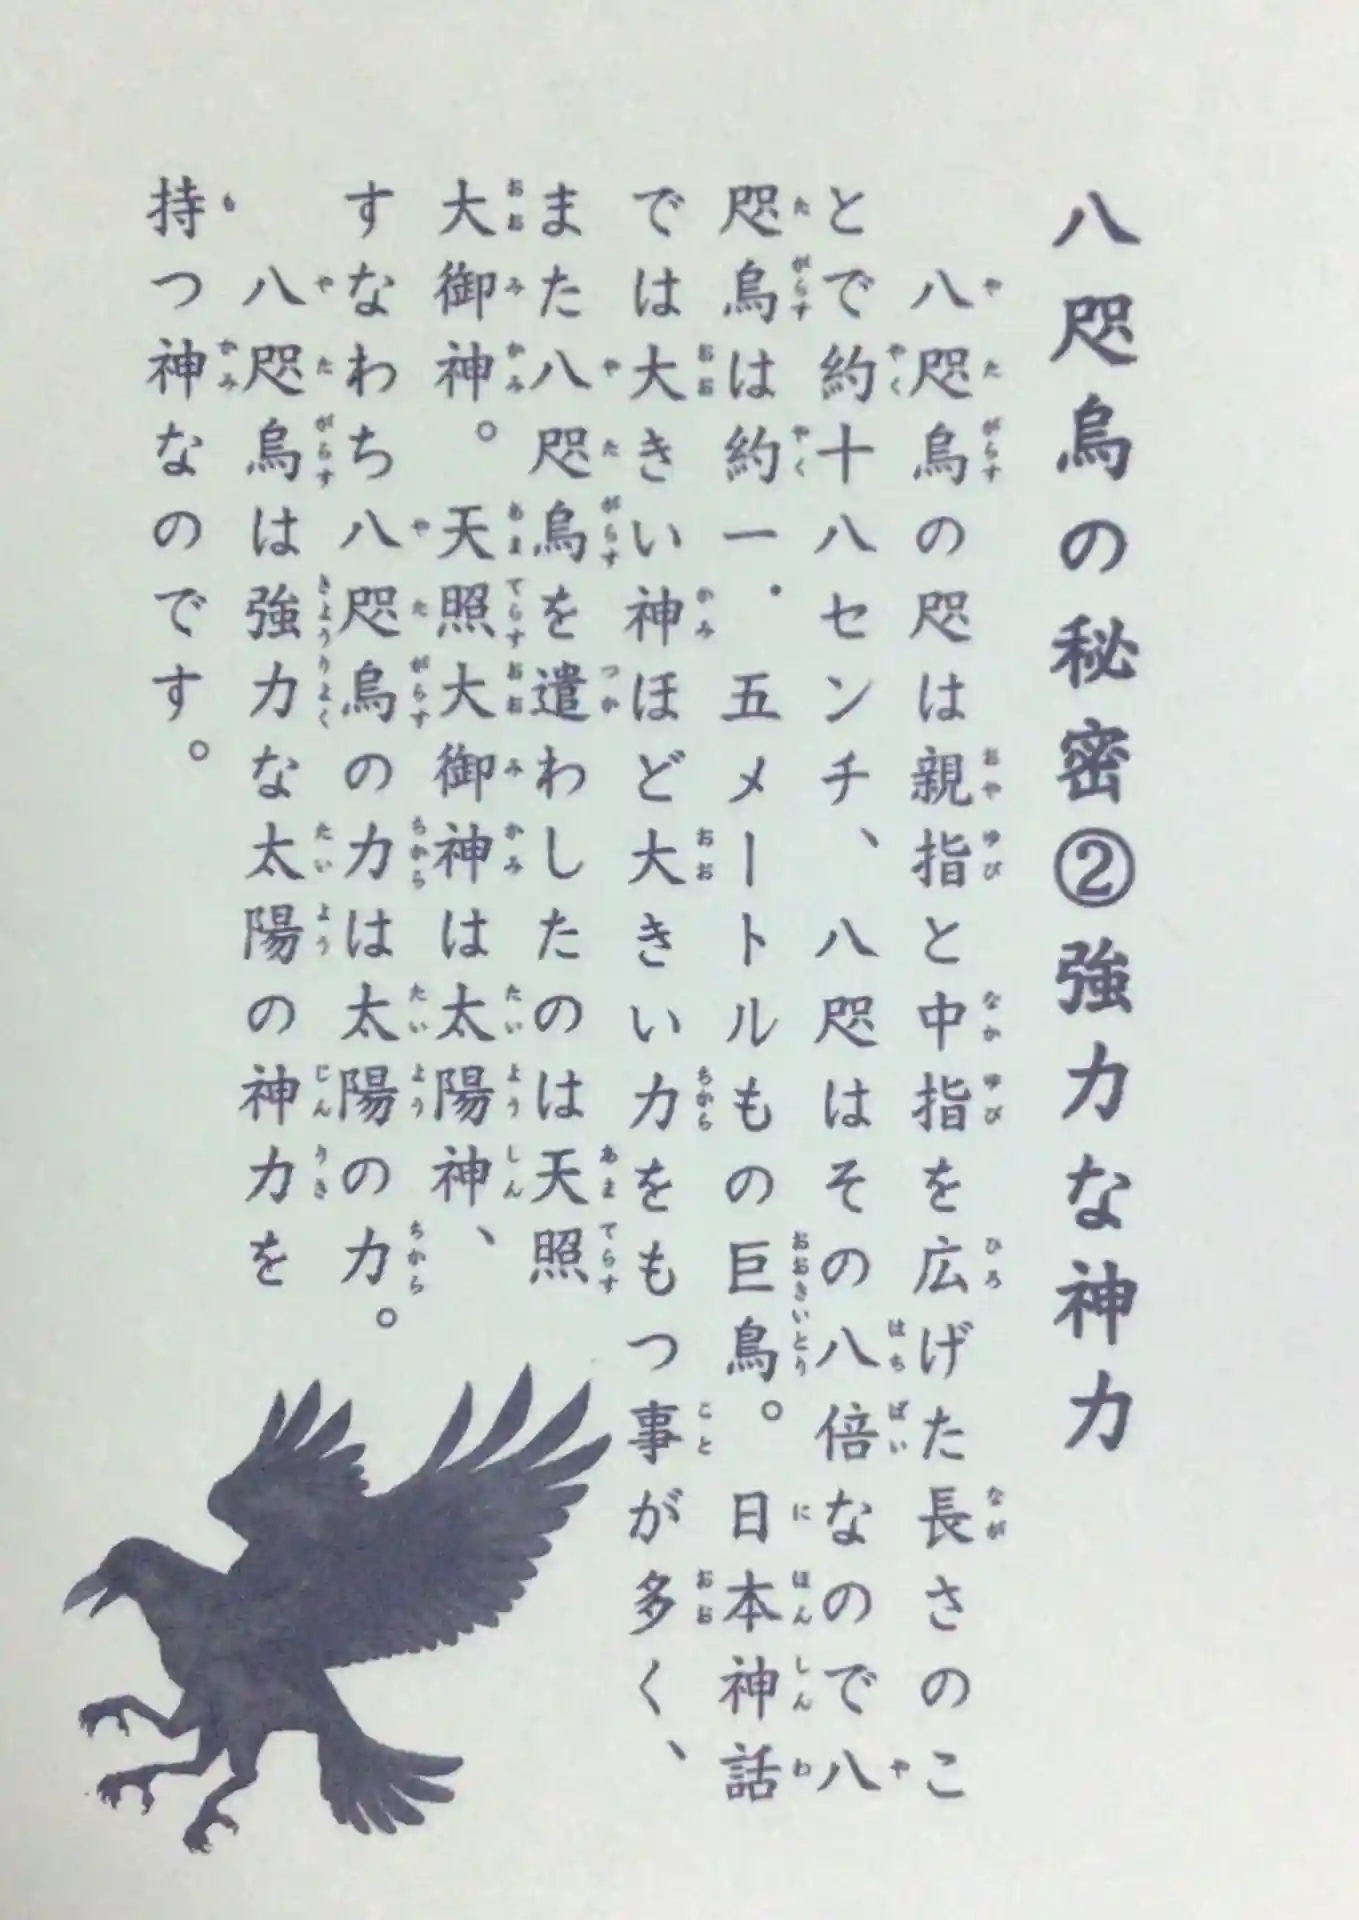 八咫烏の秘密②強力な神力
八咫烏の咫は親指と中指を広げた長さのこ
とで約十八センチ、八咫はその八倍なので八
咫烏は約一．五メートルもの巨鳥。日本神話
では大きい神ほど大きい力をもつ事が多く、
また八咫烏を遣わしたのは天照
大御神。天照大御神は太陽神、
すなわち八咫烏の力は太陽の力。
八咫烏は強力な太陽の神力を
持つ神なのです。